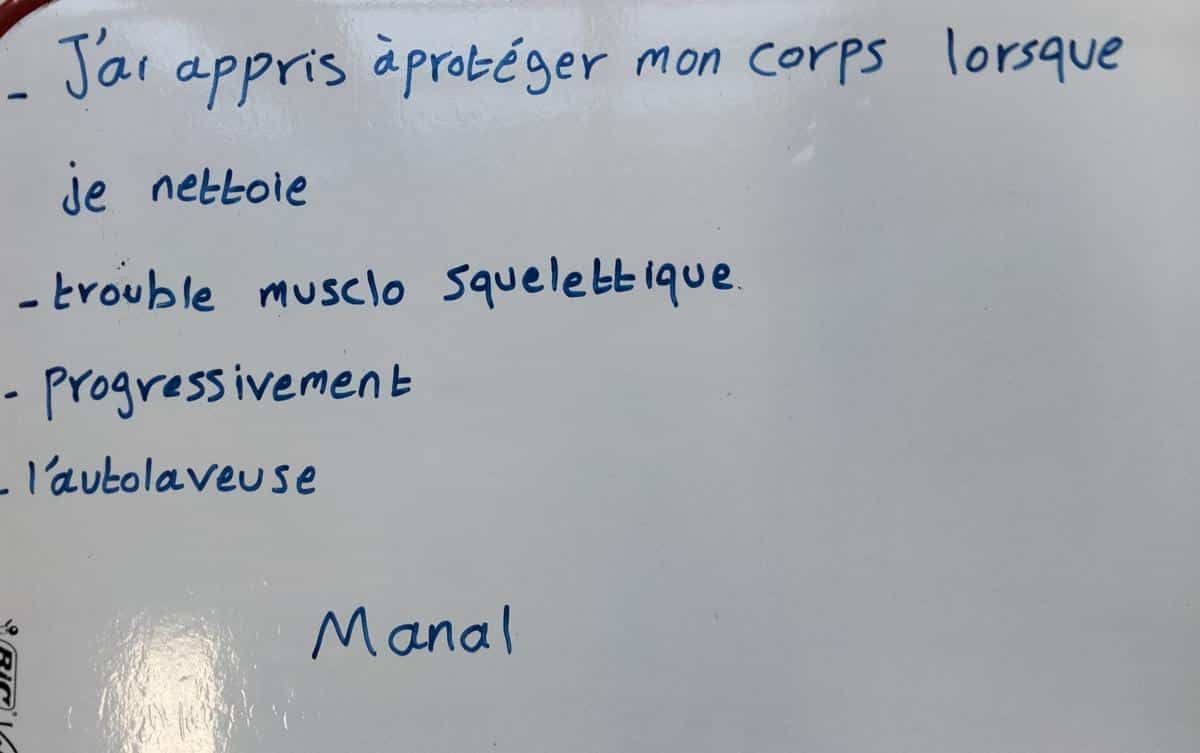 - J'ai appris àprotéger mon corps lorsque
je nettoie
- trouble musclo squelettique.
- progressivement
- l'autolaveuse
Manal
BIC